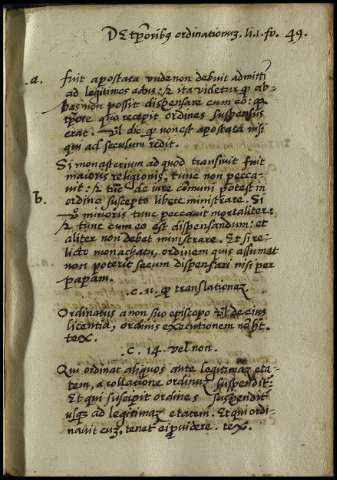 DE tꝑoribꝰ ordinationuꝫ. li.1. fo. 49.
.a. fuit apostata vnde non debuit admitti
ad legitimos actus: & ita videtur ꝙ ab-
bas non possit dispensare cum eo: ꝙ
tpote quo recepit ordines suspensus
erat. Vl dic ꝙ non est apostata nisi
qui ad seculum redit.
Si monasterium ad quod transiuit fuit
maioris religionis, tunc non pecca-
uit: & tūc de iure comuni potest in
b. ordine suscepto libere ministrare. Si
vo minoris tunc peccauit mortaliter:
& tunc cum eo est dispensandum: et
aliter non debet ministrare. Et si re-
licto monachatu, ordinem quis assumat
non poterit secum dispensari nisi per
papam.
.c. 11. ꝙ translationeꝫ
Ordinatus a non suo episcopo vl de eius
licentia, ordinis executionem nō ht.
tex.
.c. 14. vel non.
Qui ordinat aliquos ante legitimaꝫ eta-
tem, a collatione ordinuꝫ suspendit:
Et qui suscipit ordines suspendit
usqꝫ ad legitimaꝫ etatem. Et qui ordi-
nauit euꝫ, tenet ei ꝓuidere. tex.